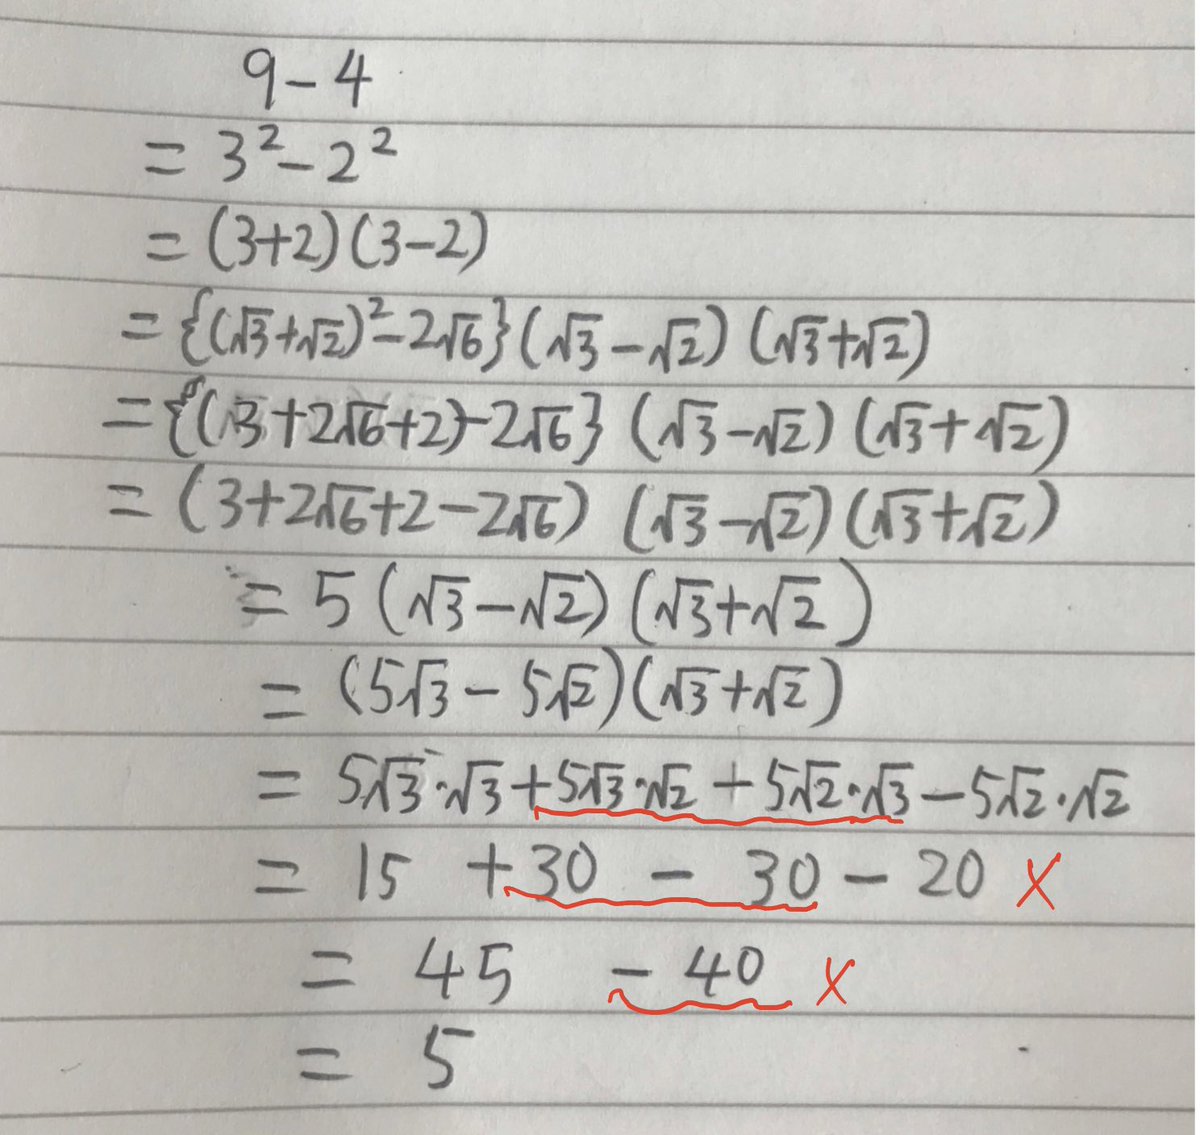 9-4
= 3²-2²
= (3+2)(3-2)
= {(√3+√2)²-2√6}(√3-√2)(√3+√2)
= {(3+2√6+2)-2√6}(√3-√2)(√3+√2)
= (3+2√6+2-2√6)(√3-√2)(√3+√2)
= 5(√3-√2)(√3+√2)
= (5√3-5√2)(√3+√2)
= 5√3·√3+5√3·√2+5√2·√3-5√2·√2
= 15 +30 - 30 - 20 X
= 45 - 40 X
= 5